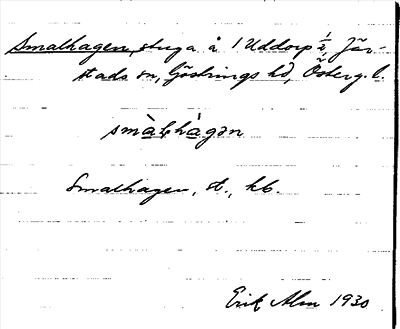 Smalhagen, stuga å 1 Uddorp ½, Jär-
stads sn, Göstrings hd, Österg. l.
smàlhàgən
Smalhagen, st., kb.
Erik Alm 1930